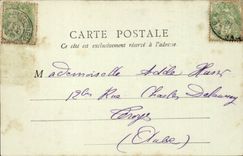 CARTE POSTALE
Ce côté est exclusivement réservé à l'adresse
Mademoiselle
12 bis Rue Charles Delaunay
Troyes
(Aube)